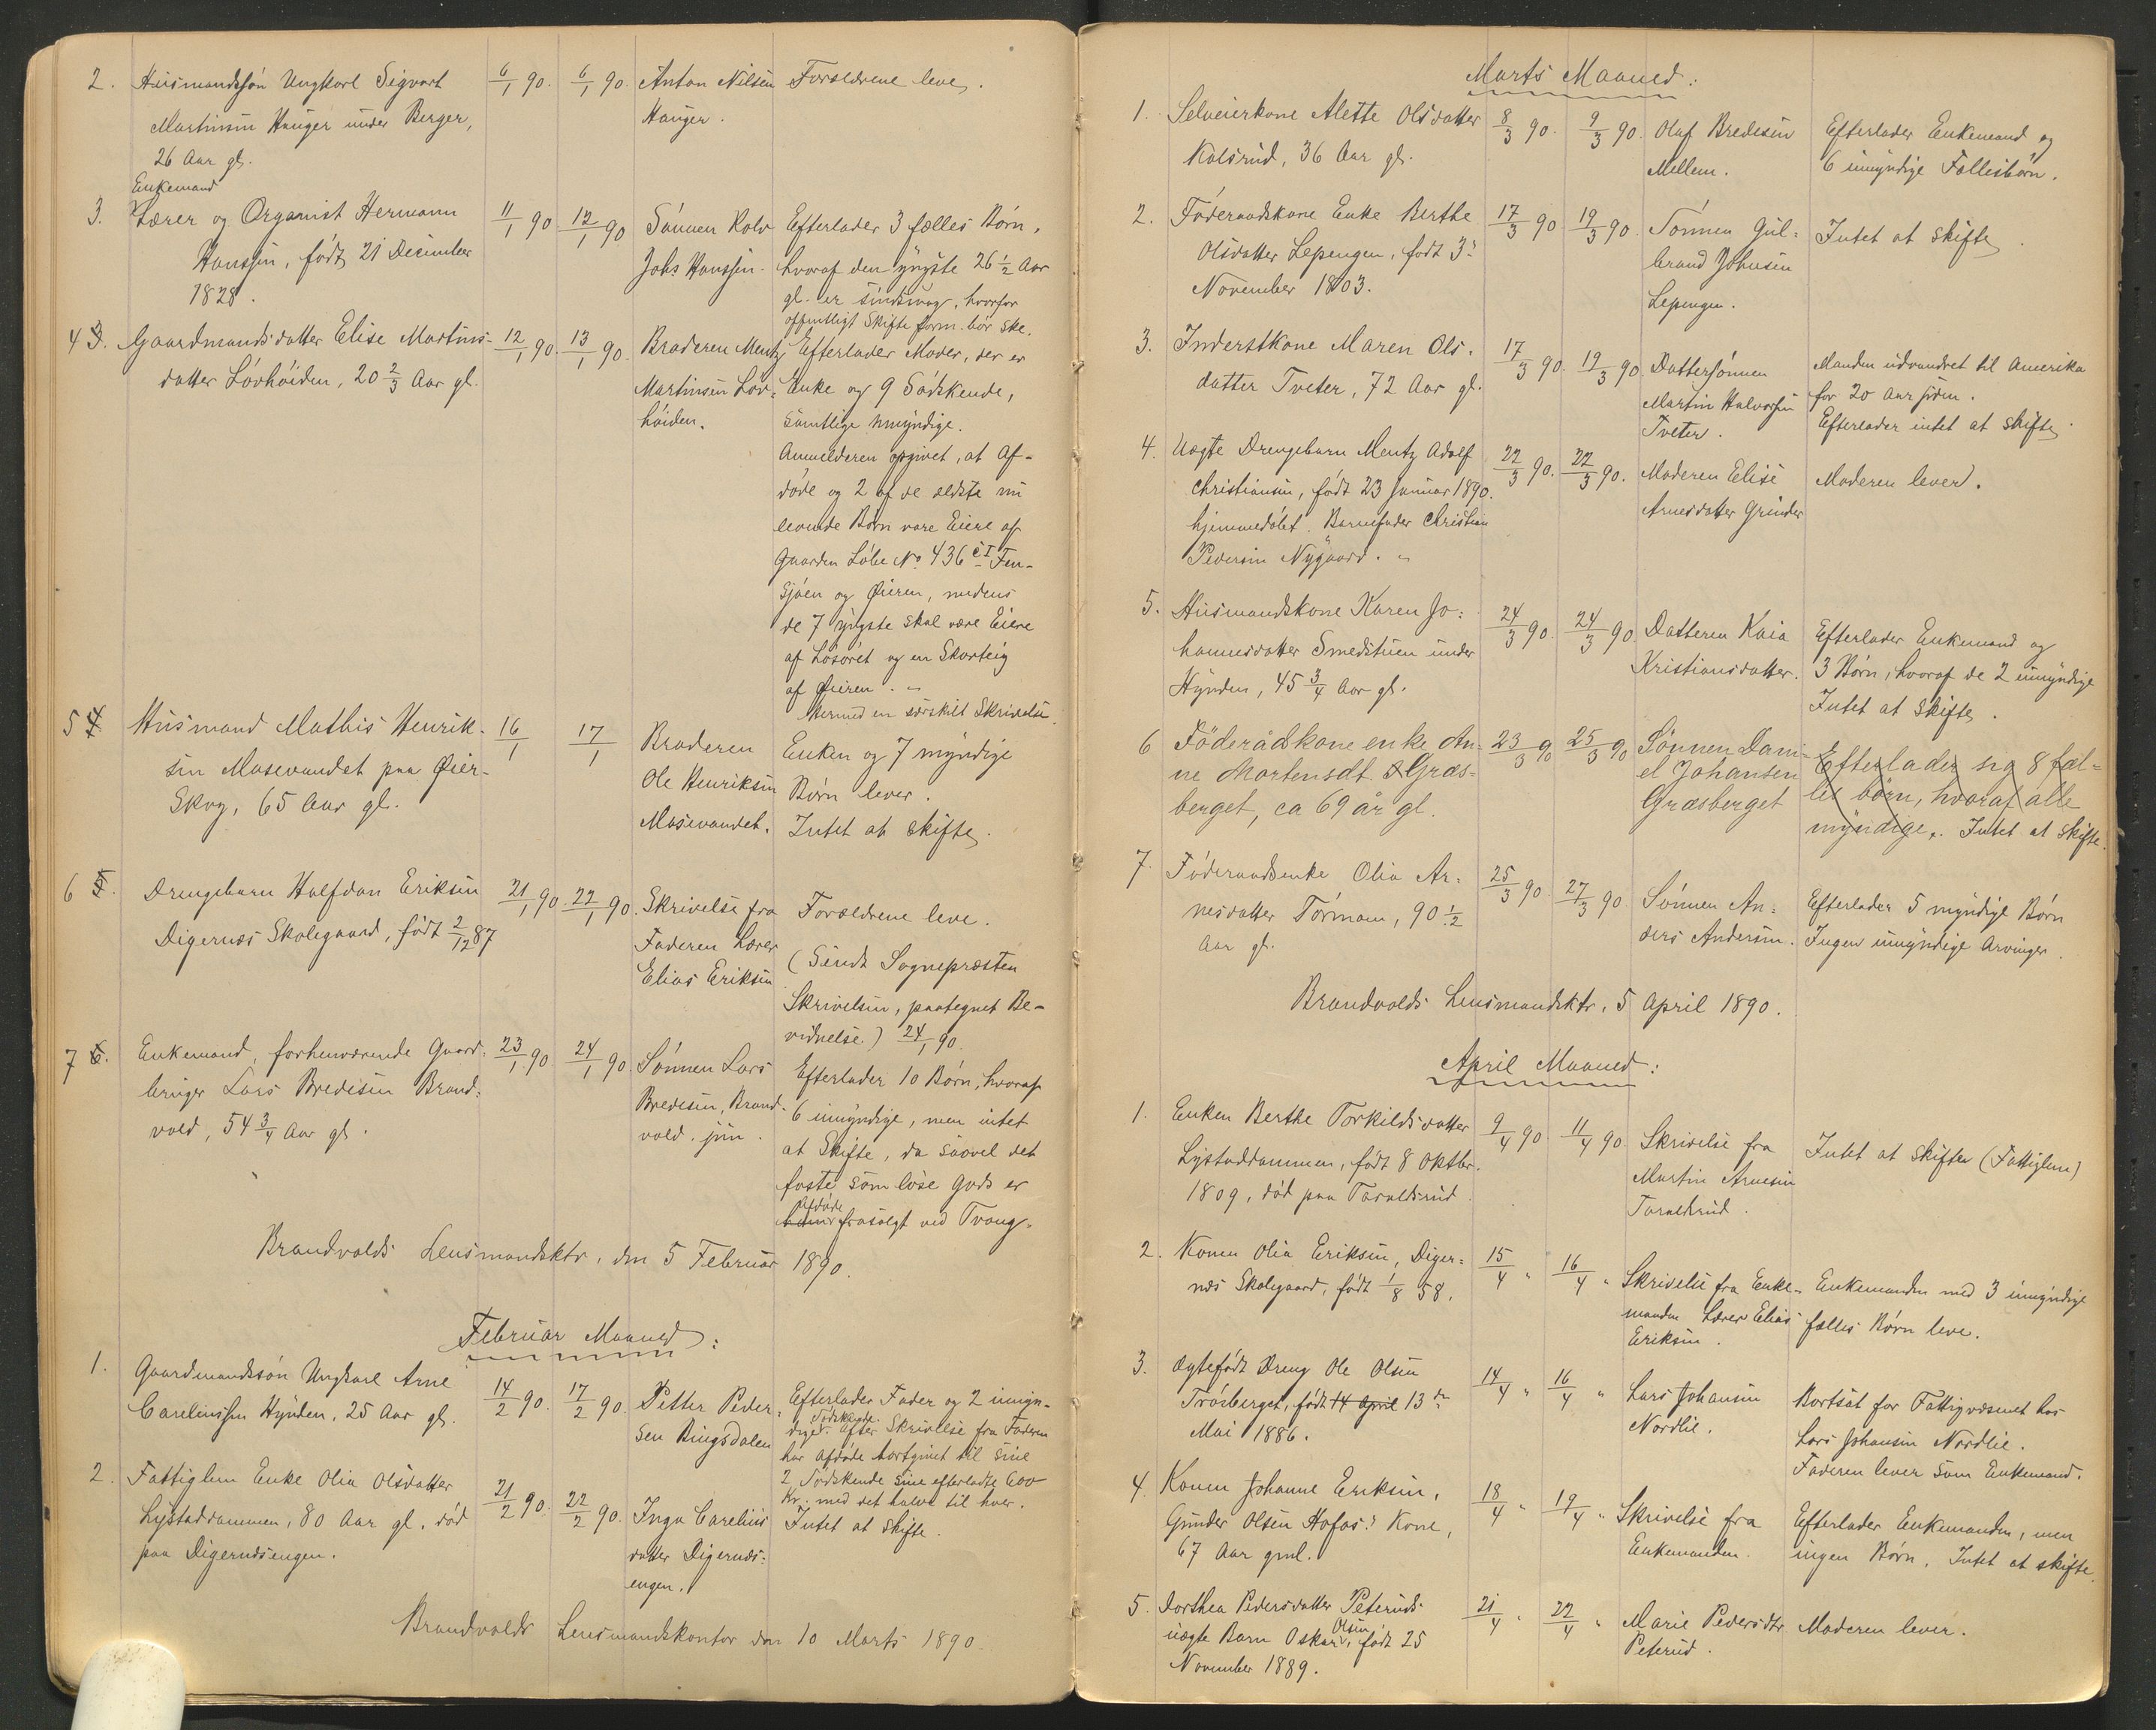 2. Husmandssøn Ungkarl Sigvart 6/1 90. 6/1 90. Anton Nilsen Forældrene leve.
Martinsen Hauger under Berger, Hauger.
26 Aar gl.
Enkemand
3. Lærer og Organist Hermann 11/1 90 12/1 90 Sønnen Rolv Efterlader 3 fælles Børn,
Hanssen, født 21 December Johs Hanssen. hvoraf den yngste 26 1/2 Aar
1828. gl. er sindssvag, hvorfor
offentligt Skifte form. bør ske.
4 3. Gaardmandsdatter Elise Martins- 12/1 90. 13/1 90. Broderen Mentz Efterlader Moder, der er
datter Løvhöiden, 20 2/3 Aar gl. Martinsen Løv- Enke og 9 Sødskende,
höiden. samtlige umyndige.
Anmelderen opgivet, at Af-
døde og 2 af de ældste nu
levende Børn vare Eiere af
Gaarden Løbe No. 436 c I
Sjöen og Øieren, medens
de 7 yngste skal være Eiere
af Løsøret og en Skovteig
af Øieren. "
Hermed en særskilt Skrivelse.
5 4. Husmand Mathis Henrik- 16/1 17/1 Broderen Enken og 7 myndige
sen Mosevandet paa Øier- Ole Henriksen Børn lever.
Skog, 65 Aar gl. Mosevandet. Intet at skifte.
6 5. Drengebarn Halfdan Eriksen 21/1 90. 22/1 90. Skrivelse fra Forældrene leve.
Digernæs Skolegaard, født 2/12 87 Faderen Lærer (Sendt Sognepræsten
Elias Eriksen Skrivelsen, paategnet Be-
vidnelse.) 24/1 90.
7 6. Enkemand, forhenværende Gaard- 23/1 90. 24/1 90. Sønnen Lars Efterlader 10 Børn, hvoraf
bruger Lars Bredesen Brand- Bredesen, Brand- 6 umyndige, men intet
vold, 54 3/4 Aar gl. vold. jun. at Skifte, da saavel det
faste som løse Gods er
Afdøde
frasolgt ved Tvang.
Brandvolds Lensmandsktr, den 5 Februar 1890.
Februar Maaned:
1. Gaardmandssøn Ungkarl Arne 14/2 90. 17/2 90. Petter Peder- Efterlader Fader og 2 umyn-
Carelinssen Hynden, 25 Aar gl. sen Ringsdalen dige Sødskende. Efter Skrivelse fra Faderen
har Afdøde bortgivet til sine
2 Sødskende sine efterladte 600
Kr. med det halve til hver.
2. Fattiglem Enke Olia Olsdatter 21/2 90. 22/2 90. Inga Carelius Intet at skifte.
Lystaddammen, 80 Aar gl. død datter Digernæs-
paa Digernæsengen. engen.
Brandvolds Lensmandskontor den 10 Marts 1890.
Marts Maaned:
1. Selveierkone Alette Olsdatter 8/3 90. 9/3 90. Olaf Bredesen Efterlader Enkemand og
Kolsrud, 36 Aar gl. Mellem. 6 umyndige Fællesbørn.
2. Føderaadskone Enke Berthe 17/3 90 19/3 90. Sønnen Gul- Intet at skifte.
Olsdatter Lepengen, født 3:
November 1803. brand Johnsen
Lepengen.
3. Inderstkone Maren Ols- 17/3 90. 19/3 90 Dattersønnen Manden udvandret til Amerika
datter Tveter, 72 Aar gl. Martin Halvorsen for 20 Aar siden.
Tveter. Efterlader intet at skifte.
4. Uægte Drengebarn Mentz Adolf 22/3 90. 22/3 90. Moderen Elise Moderen lever.
Christiansen, født 23 Januar 1890. Arnesdatter Grinder
hjemmedøbt. Barnefader Christian
Pedersen Nygaard. "
5. Husmandskone Karen Jo- 24/3 90. 24/3 90 Datteren Kaia Efterlader Enkemand og
hannesdatter Smedstuen under Kristiansdatter. 3 Børn, hvoraf de 2 umyndige
Hynden, 45 3/4 Aar gl. Intet at skifte.
6 Föderådskone enke An- 23/3 90 25/3 90 Sönnen Dani- Efterlader sig 8 fæl-
ne Mortensdt. Græs- el Johansen les börn, hvoraf alle
berget, ca 69 år gl. Græsberget myndige. Intet at skifte.
7. Føderaadsenke Olia Ar- 25/3 90. 27/3 90. Sønnen An- Efterlader 5 myndige Børn
nesdatter Tórmoen, 90 1/2 ders Andersen. Ingen umyndige Arvinger.
Aar gl.
Brandvolds Lensmandsktr, 5 April 1890.
April Maaned:
1. Enken Berthe Torkildsdatter 9/4 90 11/4 90. Skrivelse fra Intet at skifte (Fattiglem)
Lystaddammen, født 8 Oktbr. Martin Arnesen
1809, død paa Taraldsrud. Taraldsrud.
2. Konen Olia Eriksen, Diger- 15/4 " 16/4 " Skrivelse fra Enke- Enkemanden med 3 umyndige
næs Skolegaard, født 1/8 58. manden Lærer Elias fælles Børn leve.
Eriksen.
3. Ægtefødt Dreng Ole Olsen 14/4 " 16/4 " Lars Johansen Bortsat for Fattigvæsenet hos
Trøsberget, født 14 April 13de Nordlie. Lars Johansen Nordlie.
Mai 1886. Faderen lever som Enkemand.
4. Konen Johanne Eriksen, 18/4 " 19/4 " Skrivelse fra Efterlader Enkemanden, men
Gunder Olsen Hofos' Kone, Enkemanden. ingen Børn. Intet at skifte.
67 Aar gml.
5. Dorthea Pedersdatter Peteruds 21/4 " 22/4 " Marie Pedersdtr Moderen lever.
uægte Barn Oskar Olsen, født 25 Peterud.
November 1889.